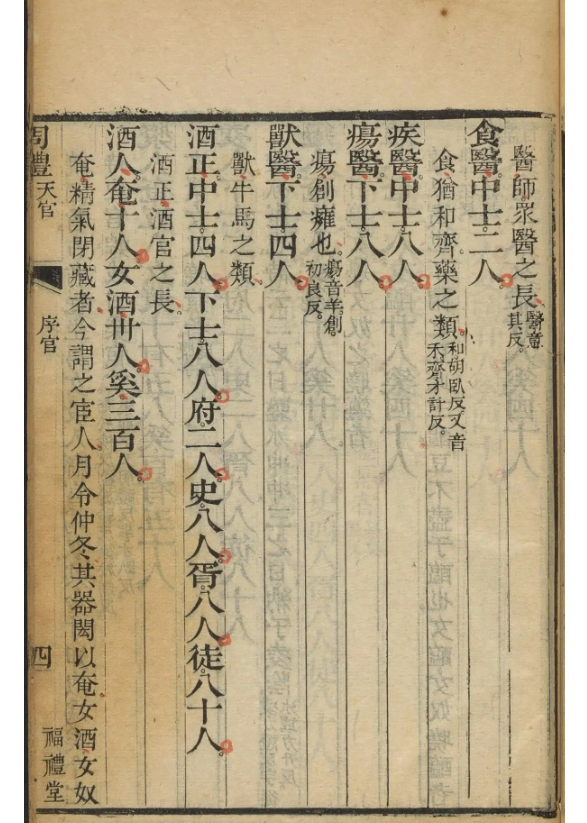 醫師衆醫之長醫意其反
食醫中士二人
食猶和齊藥之類和胡臥反又音禾齊才計反
疾醫中士八人
瘍醫下士八人
瘍創癰也瘍音羊創初良反
獸醫下士四人
獸牛馬之類
酒正中士四人下士八人府二人史八人胥八人徒八十人
酒正酒官之長
酒人奄十人女酒卅人奚三百人
奄精氣閉藏者今謂之宦人月令仲冬其器閎以奄女酒女奴
周禮天官 序官 四 福禮堂